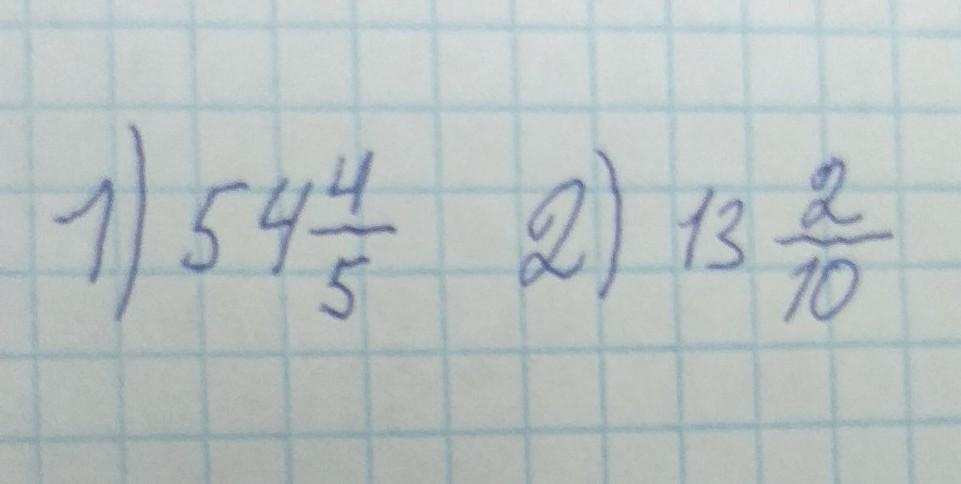 1) 54 4/5 2) 13 2/10